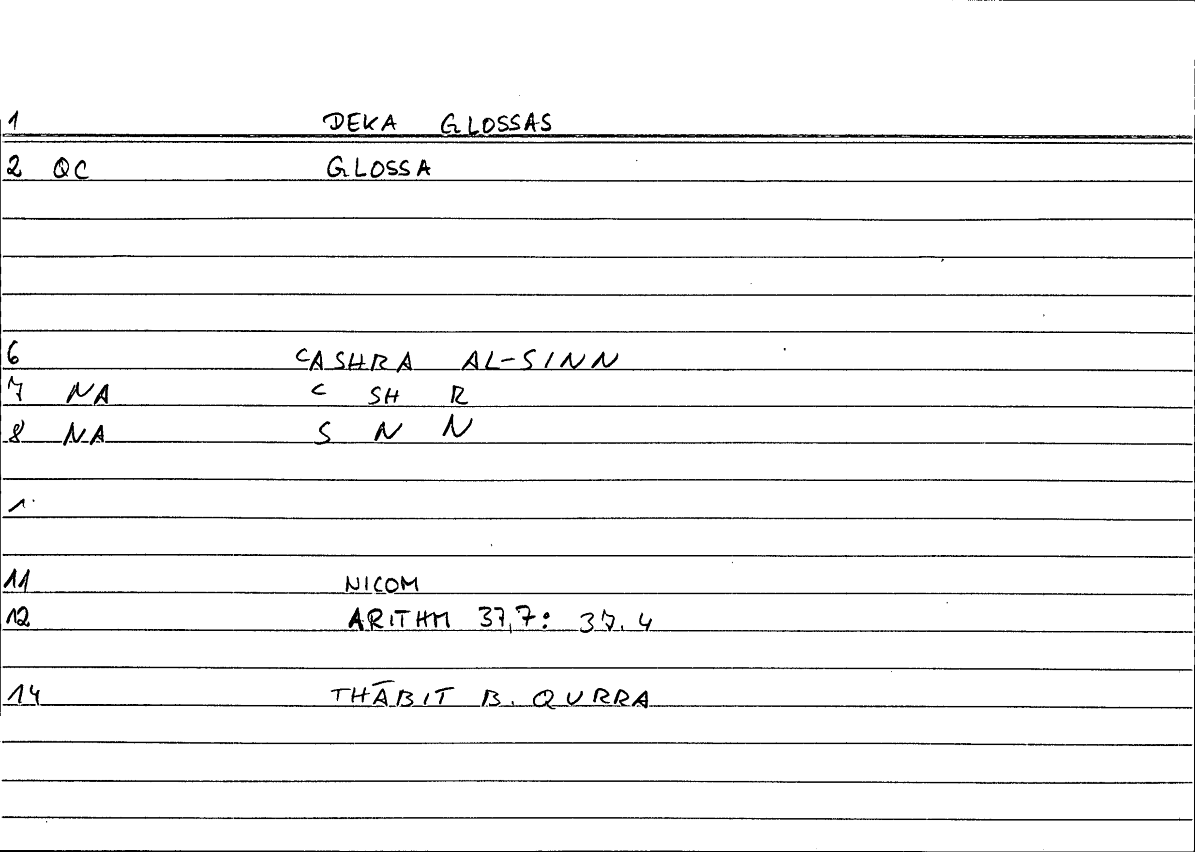 1 DEKA GLOSSAS
2 QC GLOSSA
6 ᶜASHRA AL-SINN
7 NA ᶜ SH R
8 NA S N N
1
11 NICOM
12 ARITHM 37,7: 37.4
14 THĀBIT B. QURRA